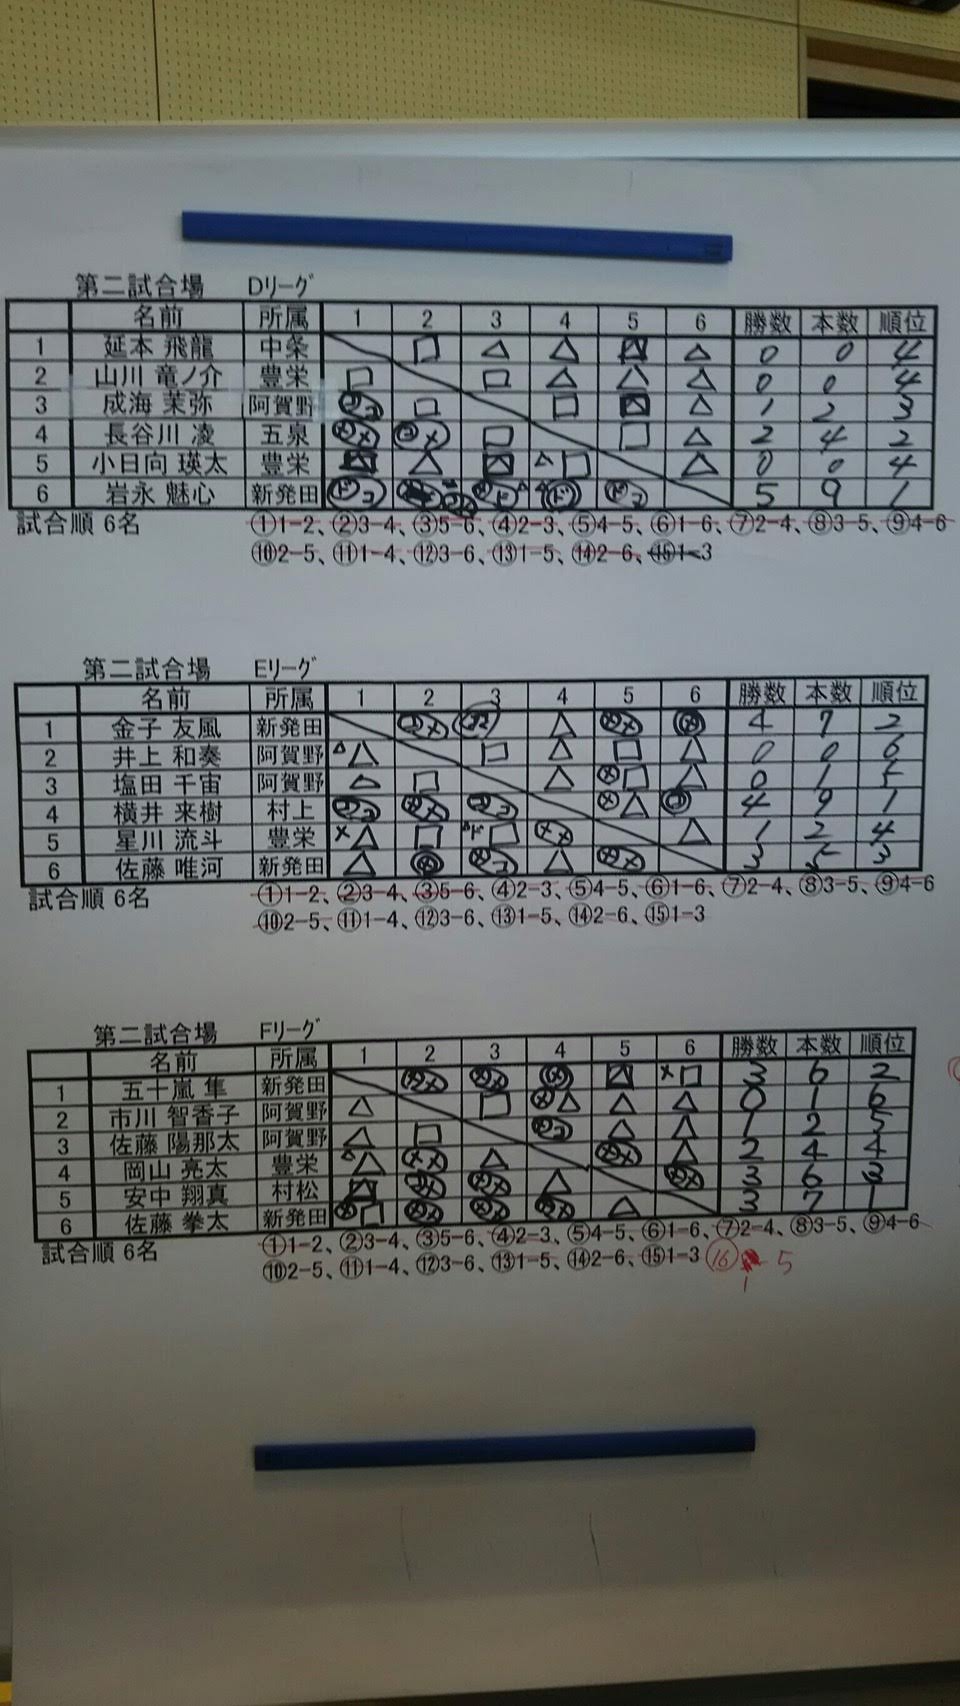 第二試合場 Dリーグ
名前 所属 1 2 3 4 5 6 勝数 本数 順位
1 延本 飛龍 中条 □ △ △ △ 0 0 4
2 山川 竜ノ介 豊栄 □ □ △ △ △ 0 0 4
3 成海 茉弥 阿賀野 □ □ △ 1 2 3
4 長谷川 凌 五泉 □ □ △ 2 4 2
5 小日向 瑛太 豊栄 △ △ □ △ 0 0 4
6 岩永 魅心 新発田 5 9 1
試合順 6名 ①1-2、②3-4、③5-6、④2-3、⑤4-5、⑥1-6、⑦2-4、⑧3-5、⑨4-6
⑩2-5、⑪1-4、⑫3-6、⑬1-5、⑭2-6、⑮1-3
第二試合場 Eリーグ
名前 所属 1 2 3 4 5 6 勝数 本数 順位
1 金子 友風 新発田 △ 4 7 2
2 井上 和奏 阿賀野 △ △ □ △ □ △ 0 0 6
3 塩田 千宙 阿賀野 △ □ △ □ △ 0 1 5
4 横井 来樹 村上 △ 4 9 1
5 星川 流斗 豊栄 △ □ □ △ 1 2 4
6 佐藤 唯河 新発田 △ △ 3 5 3
試合順 6名 ①1-2、②3-4、③5-6、④2-3、⑤4-5、⑥1-6、⑦2-4、⑧3-5、⑨4-6
⑩2-5、⑪1-4、⑫3-6、⑬1-5、⑭2-6、⑮1-3
第二試合場 Fリーグ
名前 所属 1 2 3 4 5 6 勝数 本数 順位
1 五十嵐 隼 新発田 □ 3 6 2
2 市川 智香子 阿賀野 △ □ △ △ △ 0 1 6
3 佐藤 陽那太 阿賀野 △ □ △ △ 1 2 5
4 岡山 亮太 豊栄 △ △ 2 4 4
5 安中 翔真 村松 △ 3 6 3
6 佐藤 拳太 新発田 □ △ 3 7 1
試合順 6名 ①1-2、②3-4、③5-6、④2-3、⑤4-5、⑥1-6、⑦2-4、⑧3-5、⑨4-6
⑩2-5、⑪1-4、⑫3-6、⑬1-5、⑭2-6、⑮1-3 ⑯ 1-5